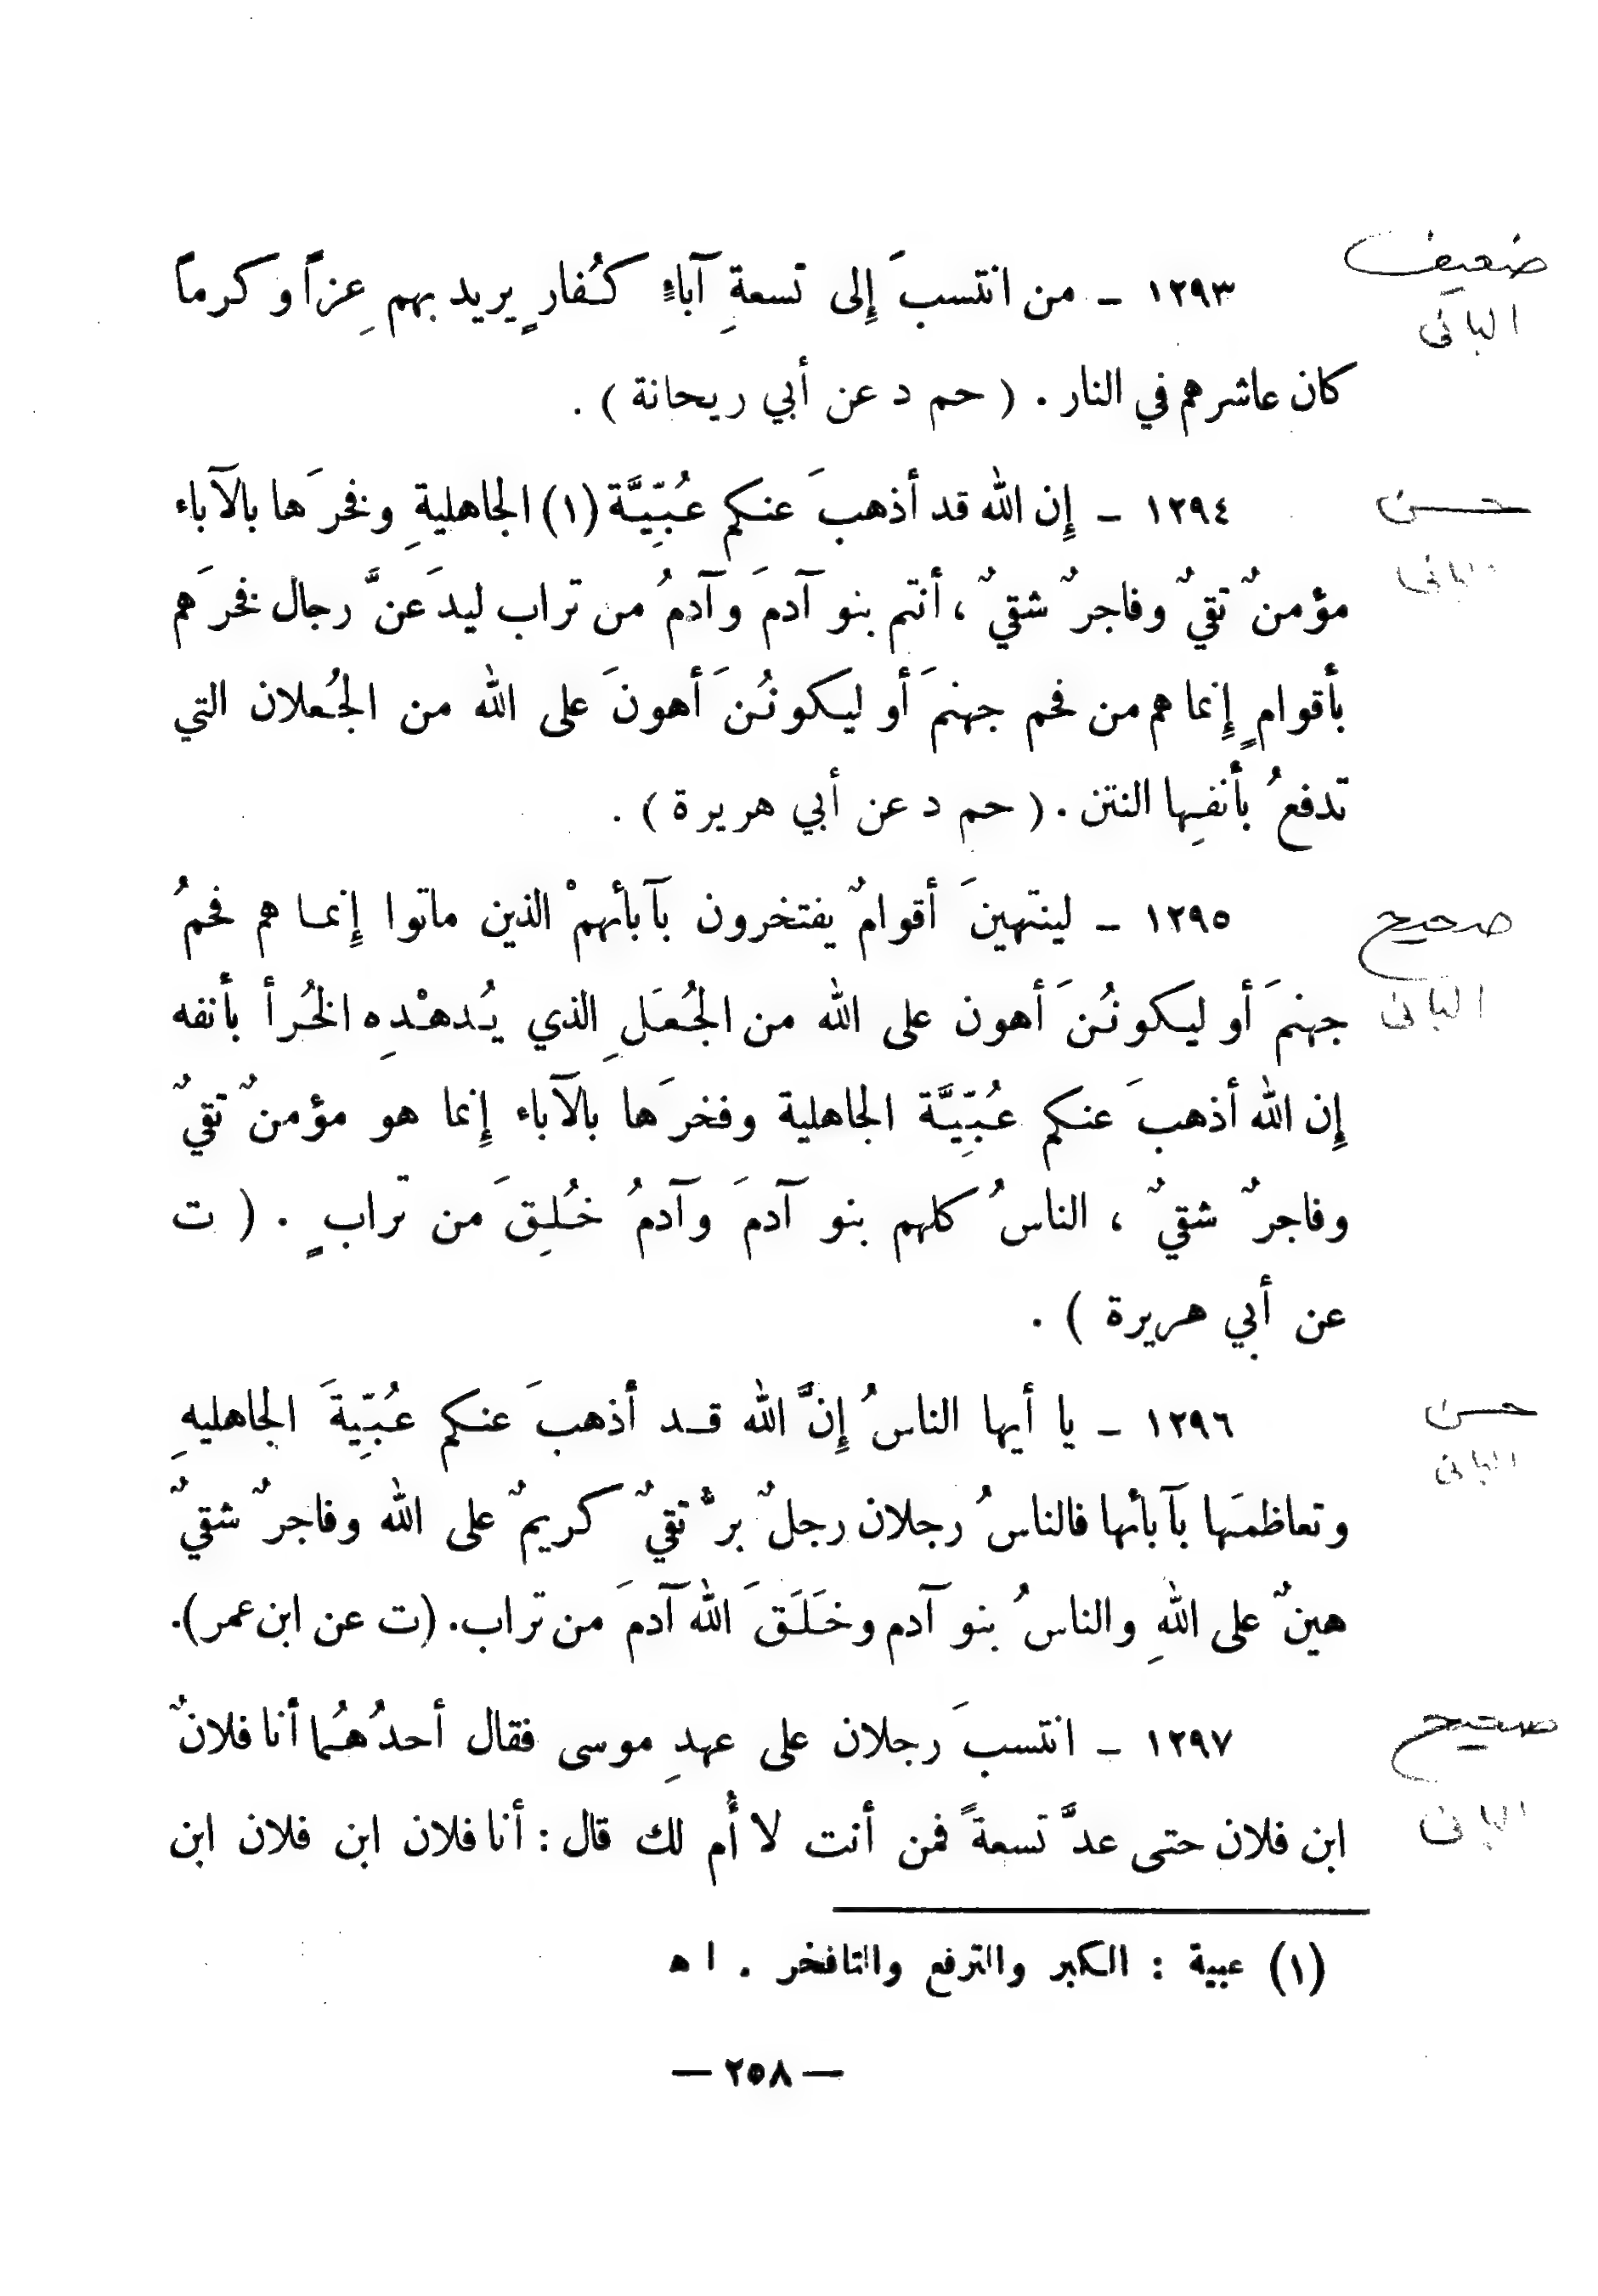 ضعيف
١٢٩٣ ـ من انتسبَ إِلى تسعةِ آباءٍ كُفارٍ يريد بهم عِزاً وكرماً
البانى
كان عاشرهم في النار . ( حم د عن أبي ريحانة ) .
حسن
١٢٩٤ ـ إِن الله قد أذهبَ عنكم عُبِّيَّة (١) الجاهليةِ وفخرَها بالآباء
البانى
مؤمنٌ تقيٌ وفاجرٌ شقيٌ ، أنتم بنو آدمَ وآدمُ من تراب ليدَعنَّ رجال فخرَهم
بأقوامٍ إِنما هم من فحم جهنمَ أو ليكونُنَ أهونَ على الله من الجُعلان التي
تدفعُ بأنفِها النتن . ( حم د عن أبي هريرة ) .
صحيح
١٢٩٥ ـ لينتهينَ أقوامٌ يفتخرون بآبائهمْ الذين ماتوا إِنما هم فحمُ
البانى
جهنمَ أو ليكونُنَ أهون على الله من الجُعَلِ الذي يُدهْدِه الخُرأ بأنفه
إِن الله أذهبَ عنكم عُبِّيَّة الجاهلية وفخرَها بالآباء إِنما هو مؤمنٌ تقيٌ
وفاجرٌ شقيٌ ، الناسُ كلهم بنو آدمَ وآدمُ خُلِقَ من ترابٍ . ( ت
عن أبي هريرة ) .
حسن
١٢٩٦ ـ يا أيها الناسُ إِنَّ الله قد أذهبَ عنكم عُبِّيةَ الجاهليهِ
البانى
وتعاظمَها بآبائها فالناسُ رجلان رجلٌ برٌّ تقيٌ كريمٌ على الله وفاجرٌ شقيٌ
هينٌ على اللهِ والناسُ بنو آدم وخَلَقَ الله آدمَ من تراب. (ت عن ابن عمر).
صحيح
١٢٩٧ ـ انتسبَ رجلان على عهدِ موسى فقال أحدُهُما أنا فلانٌ
البانى
ابن فلان حتى عدَّ تسعةً فمن أنت لا أُم لك قال : أنا فلان ابن فلان ابن
(١) عبية : الكبر والترفع والتافخر . ا ه
— ٢٥٨ —